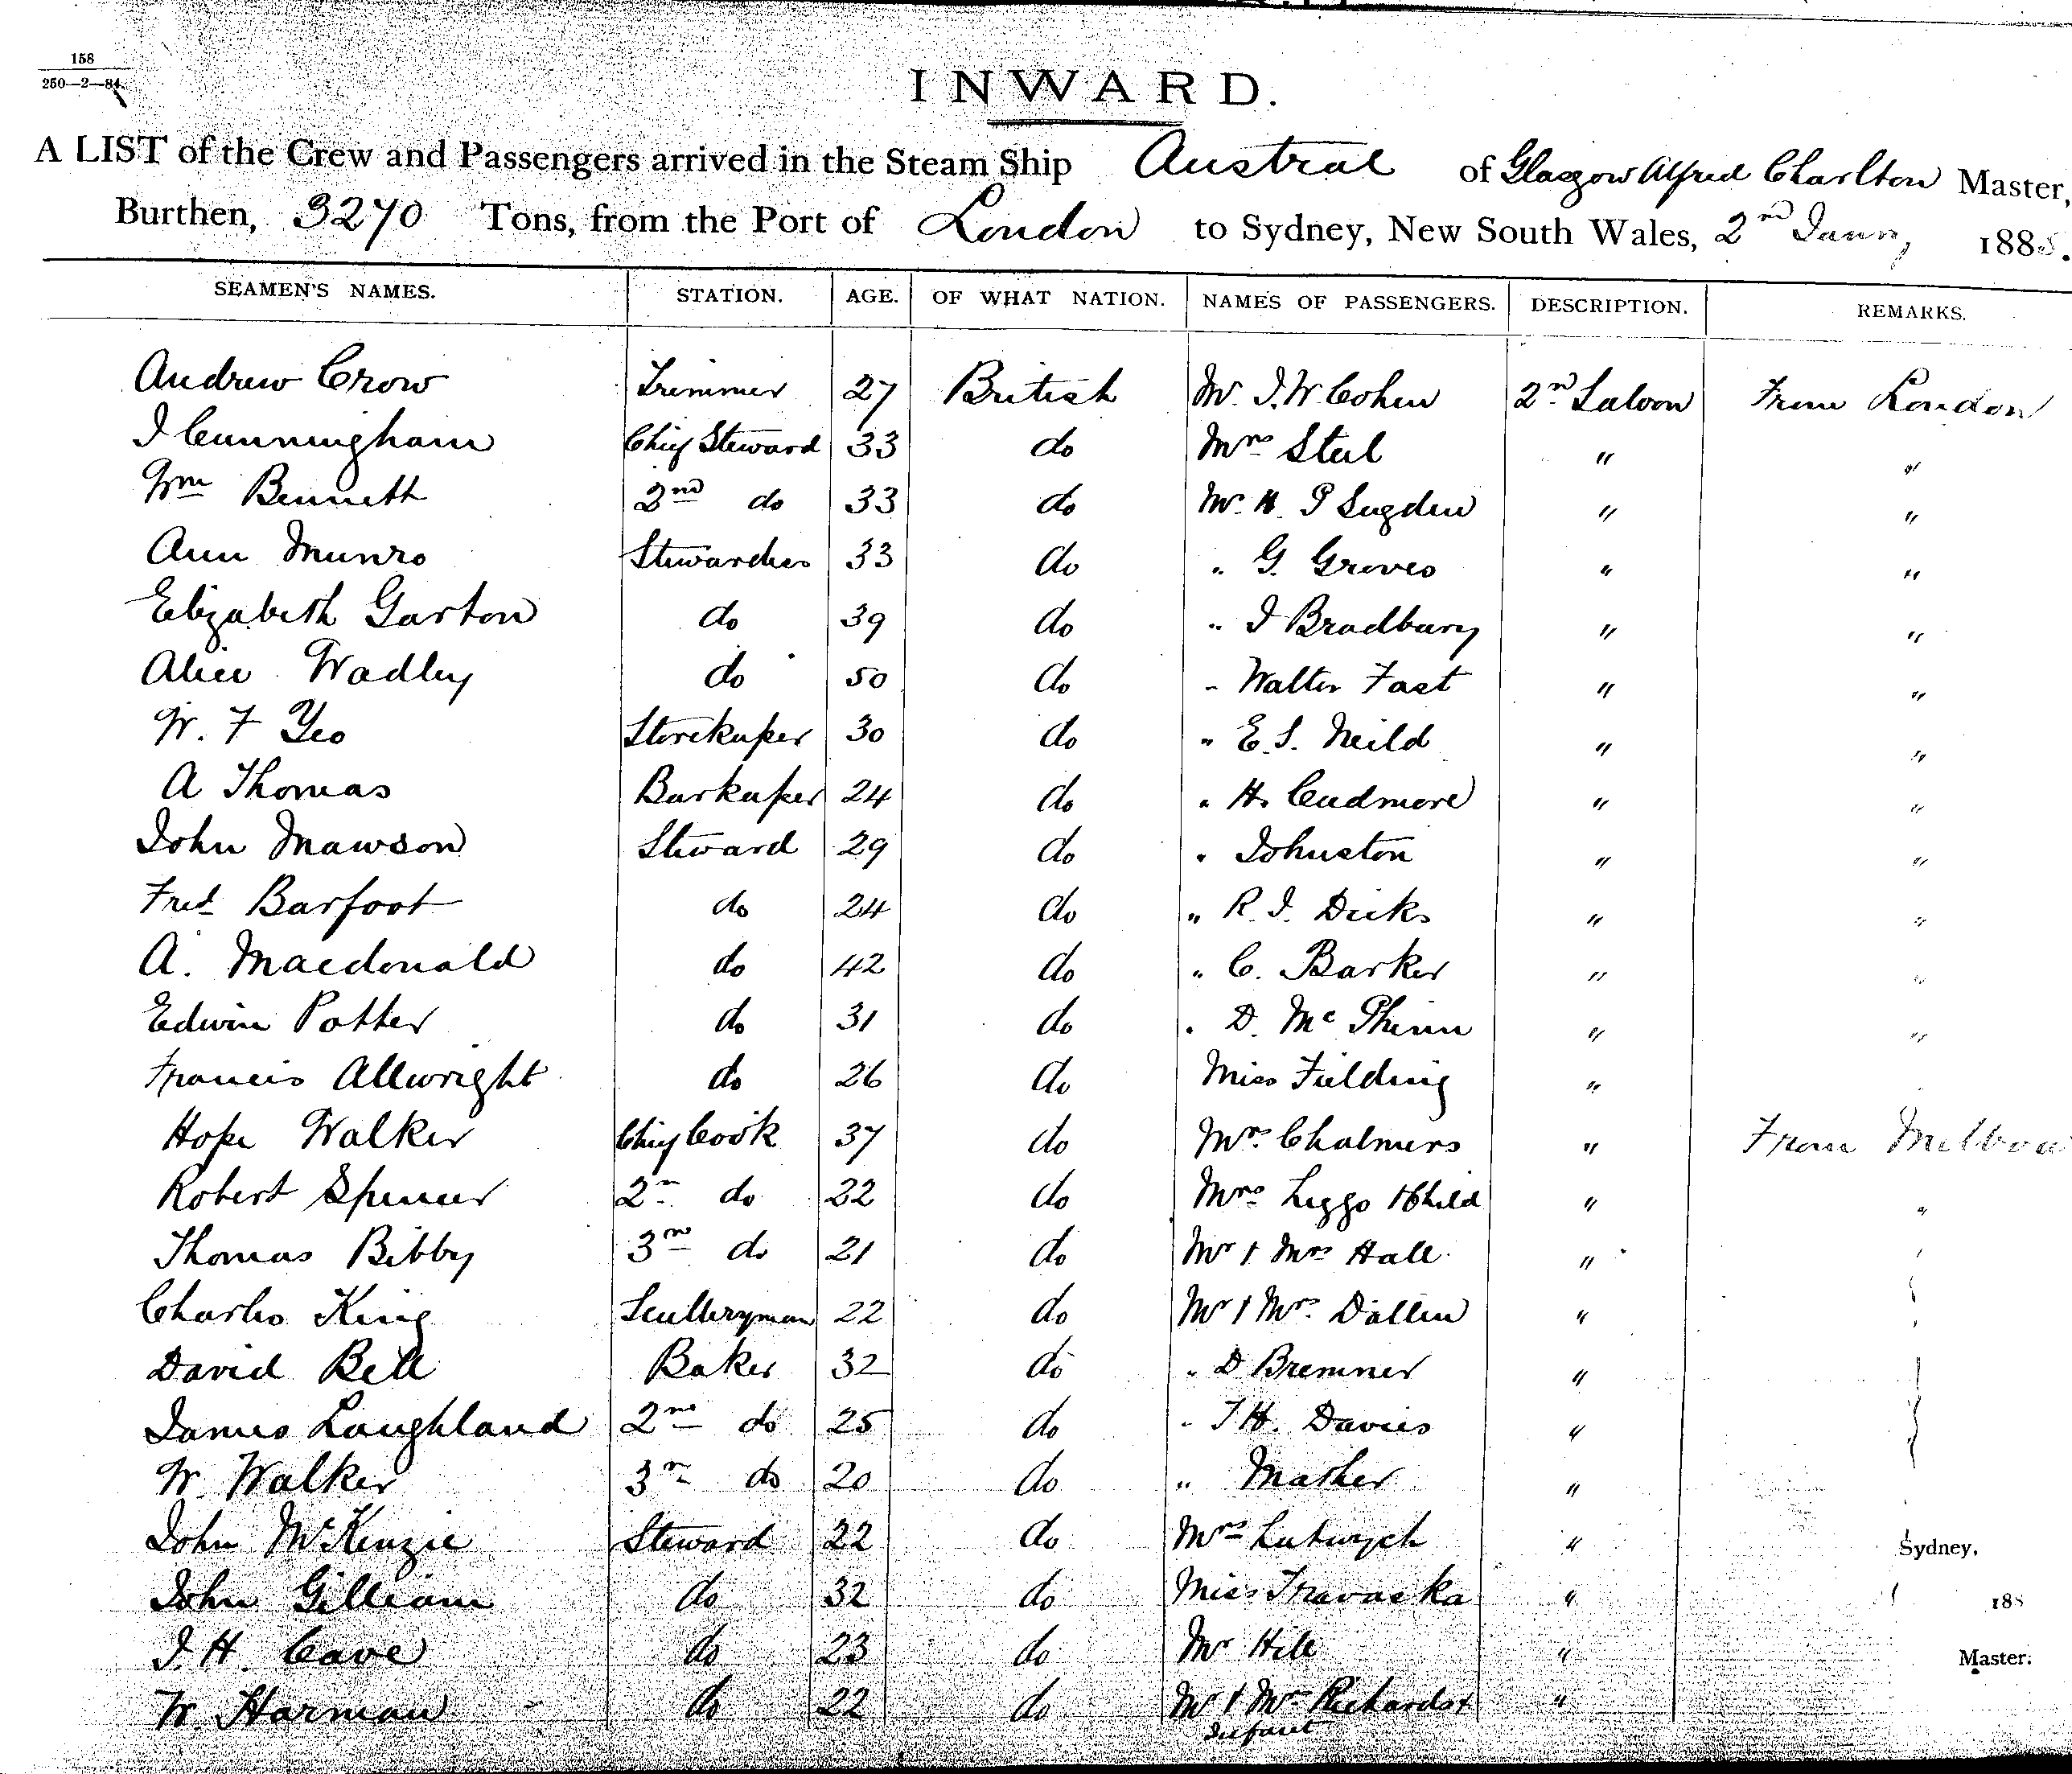 158
250—2—84.
INWARD.
A LIST of the Crew and Passengers arrived in the Steam Ship Austral of Glasgow Alfred Charlton Master,
Burthen, 3270 Tons, from the Port of London to Sydney, New South Wales, 2nd Jany 188
SEAMEN'S NAMES. STATION. AGE. OF WHAT NATION. NAMES OF PASSENGERS. DESCRIPTION. REMARKS.
Andrew Crow Trimmer 27 British Mr. J. W. Cohen 2nd Saloon From London
J Cunningham Chief Steward 33 do Mrs Steel " "
Wm Bennett 2nd do 33 do Mr. H. P Sugden " "
Ann Munro Stewardess 33 do " G. Groves " "
Elizabeth Garton do 39 do " J Bradbury " "
Alice Wadley do 50 do " Walter Fast " "
W. F Yeo Storekeeper 30 do " E. S. Neild " "
A Thomas Barkeeper 24 do " H. Cudmore " "
John Mawson Steward 29 do " Johnston " "
Fred Barfoot do 24 do " R. J. Dicks " "
A. Macdonald do 42 do " C. Barker " "
Edwin Potter do 31 do " D. Mc Phinn " "
Francis Allwright do 26 do Miss Fielding "
Hope Walker Chief Cook 37 do Mrs. Chalmers " From
Robert Spencer 2n do 22 do Mrs Liggo & Child " "
Thomas Bibby 3rd do 21 do Mr & Mrs Hall "
Charles King Sculleryman 22 do Mr & Mrs. Dallen "
David Bell Baker 32 do " D Bremner "
James Laughland 2nd do 25 do " J H. Davies "
W. Walker 3rd do 20 do " Mather "
John McKenzie Steward 22 do Mrs Lutwych " Sydney,
John Gilliam do 32 do Miss Travaska " 188
J. H. Cave do 23 do Mr Hill " Master.
W. Harman do 22 do Mr & Mrs Richards & "
Infant